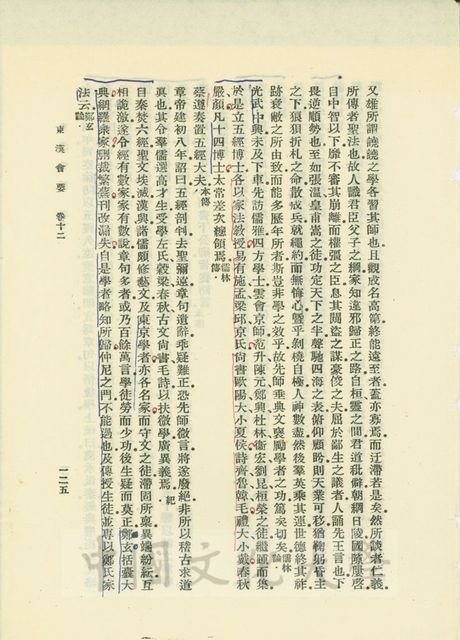 又雄所謂譊譊之學各習其師也且觀成名高第終能遠至者蓋亦寡焉而迂滯若是矣然所談者仁義
所傳者聖法也故人識君臣父子之綱家知違邪歸正之路自桓靈之間君道秕僻朝綱日陵國隙屢啓
自中智以下靡不審其崩離而權彊之臣息其闚盜之謀豪俊之夫屈於鄙生之議者人誦先王言也下
畏逆順勢也至如張溫皇甫嵩之徒功定天下之半聲馳四海之表俯仰顧眄則天業可移猶鞠躬昏主
之下狼狽折札之命散成兵就繩約而無悔心暨乎剝橈自極人神數盡然後羣英乘其運世德終其祚
跡衰敝之所由致而能多歷年所者斯豈非學之效乎故先師垂典文褒勵學者之功篤矣切矣儒林論
光武中興未及下車先訪儒雅四方學士雲會京師范升陳元鄭興杜林衞宏劉昆桓榮之徒繼踵而集
於是立五經博士各以家法敎授易有施孟梁邱京氏尙書歐陽大小夏侯詩齊魯韓毛禮大小戴春秋
嚴顏凡十四博士太常差次總領焉儒林傳
蔡邕奏置五經大夫本傳
章帝建初八年詔曰五經剖判去聖彌遠章句遺辭乖疑難正恐先師微言將遂廢絕非所以稽古求道
眞也其令羣儒選高才生受學左氏穀梁春秋古文尙書毛詩以扶微學廣異義焉紀
自秦焚六經聖文埃滅漢興諸儒頗修藝文及東京學者亦各名家而守文之徒滯固所稟異端紛紜互
相詭激遂令經有數家家有數說章句多者或乃百餘萬言學徒勞而少功後生疑而莫正鄭玄括囊大
典網羅衆家删裁繁蕪刊改漏失自是學者略知所歸仲尼之門不能過也及傳授生徒並專以鄭氏家
法云鄭玄論
東漢會要 卷十二
一二五